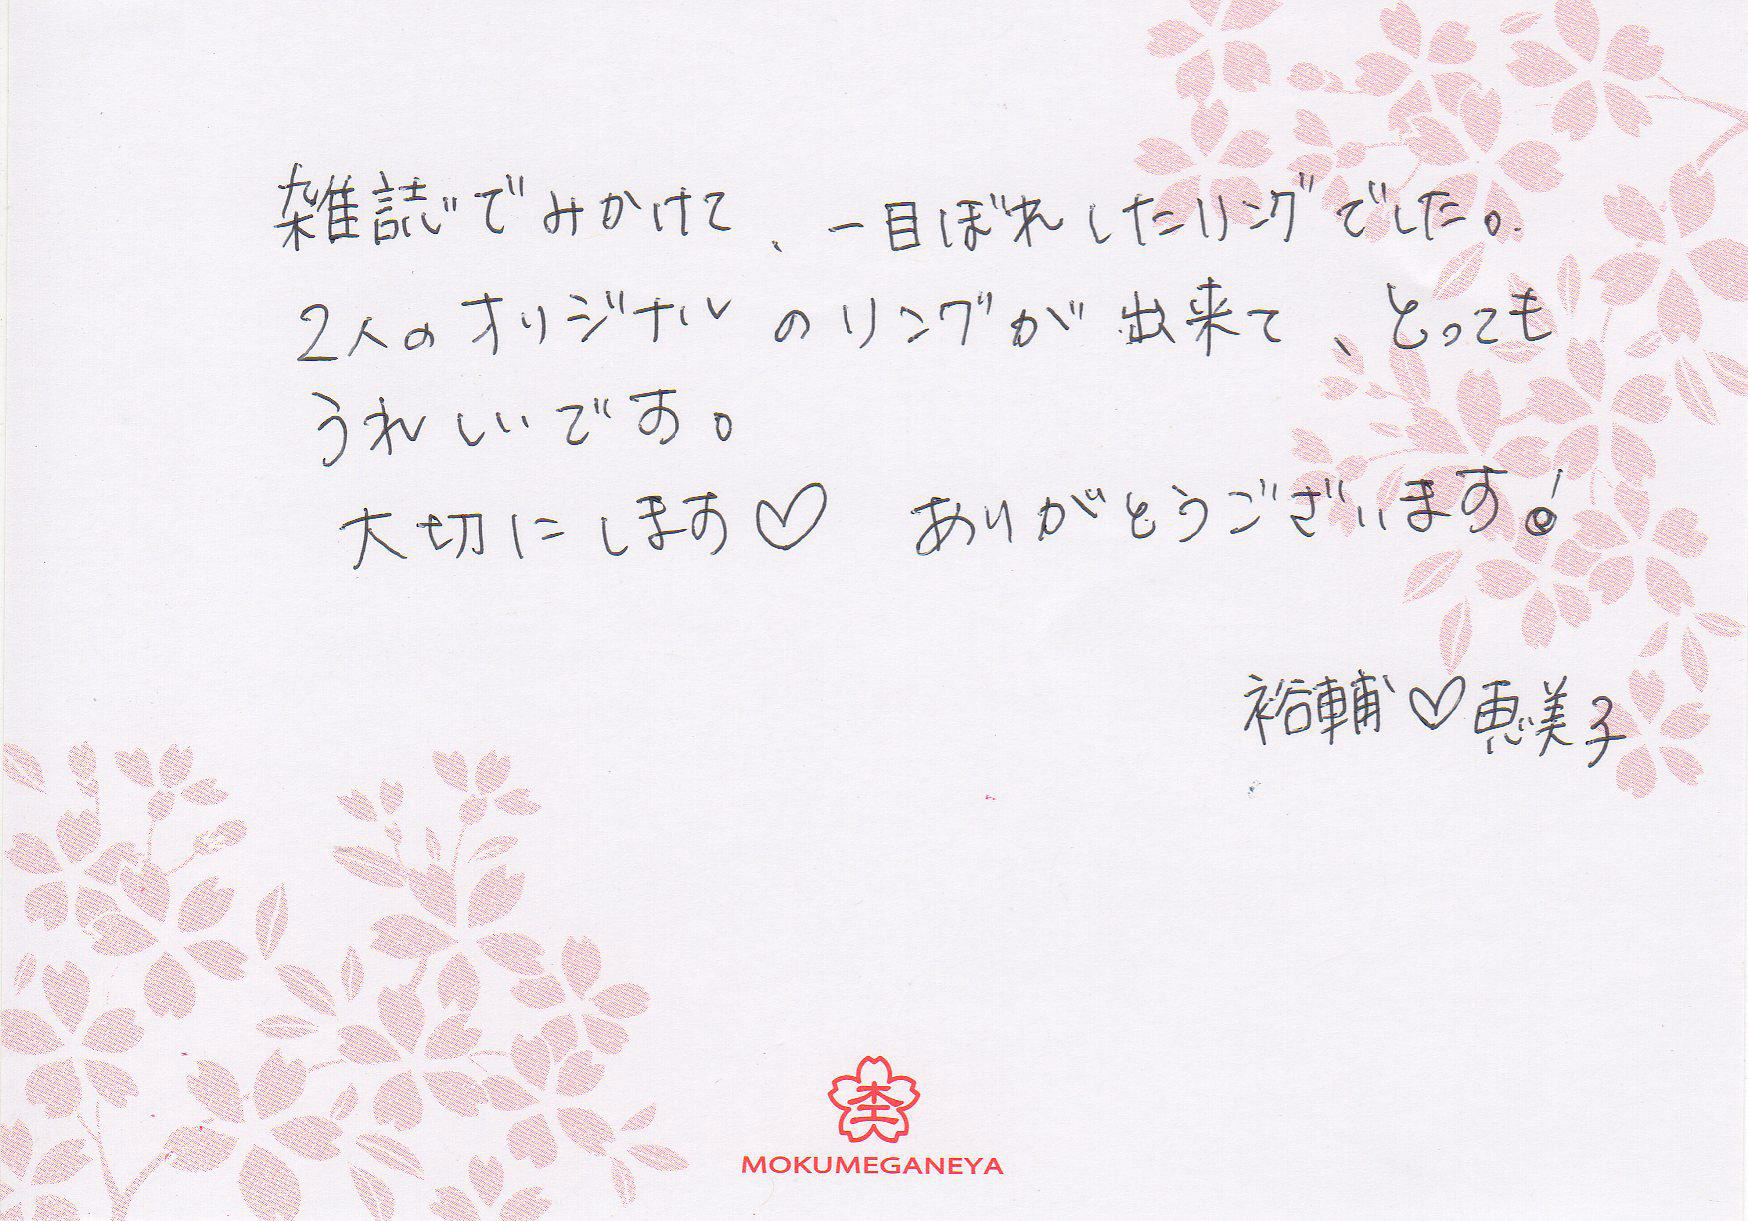 雑誌でみかけて、一目ぼれしたリングでした。
2人のオリジナルのリングが出来て、とっても
うれしいです。
大切にします♡ ありがとうございます!
裕輔♡恵美子
杢
MOKUMEGANEYA